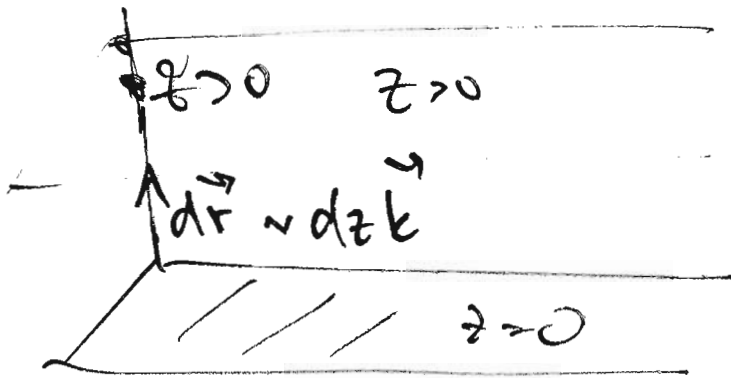 z>0 z>0
dr⃗ ~ dz k⃗
z=0